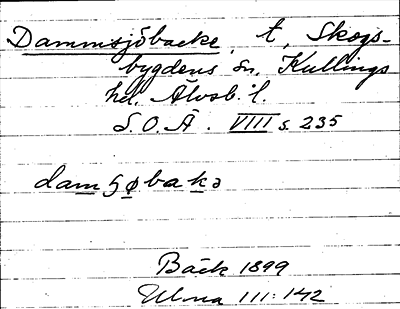 Dammsjöbacke, t, Skogs-
bygdens sn, Kullings
hd, Älvsb. l.
S.O.Ä. VIII s. 235
damsøbakə
Bäck 1899
111:142